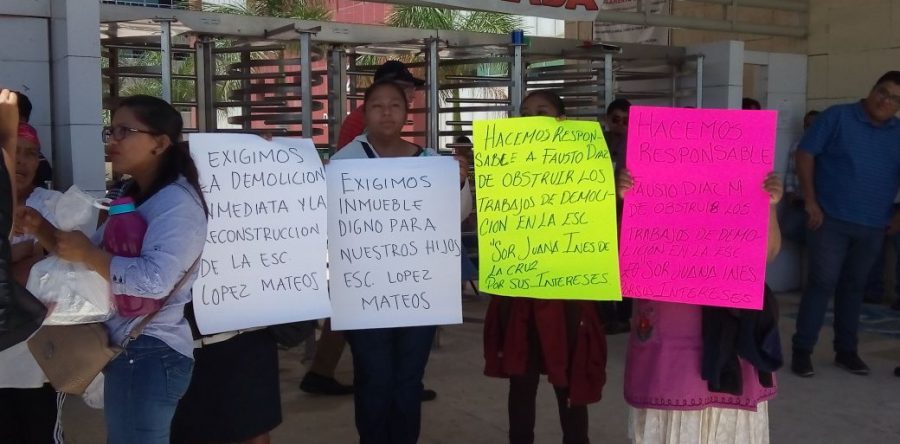 ADA
EXIGIMOS
LA DEMOLICION
INMEDIATA Y LA
RECONSTRUCCION
DE LA ESC.
LOPEZ MATEOS
EXIGIMOS
INMUEBLE
DIGNO PARA
NUESTROS HIJOS
ESC. LOPEZ
MATEOS
HACEMOS RESPON-
SABLE A FAUSTO DIAZ
DE OBSTRUIR LOS
TRABAJOS DE DEMOLI-
CION EN LA ESC
"SOR JUANA INES DE
LA CRUZ
POR SUS INTERESES
HACEMOS
RESPONSABLE
FAUSTO DIAZ M
DE OBSTRUIR LOS
TRABAJOS DE DEMO-
LICION EN LA ESC
SOR JUANA INES
POR SUS INTERESES